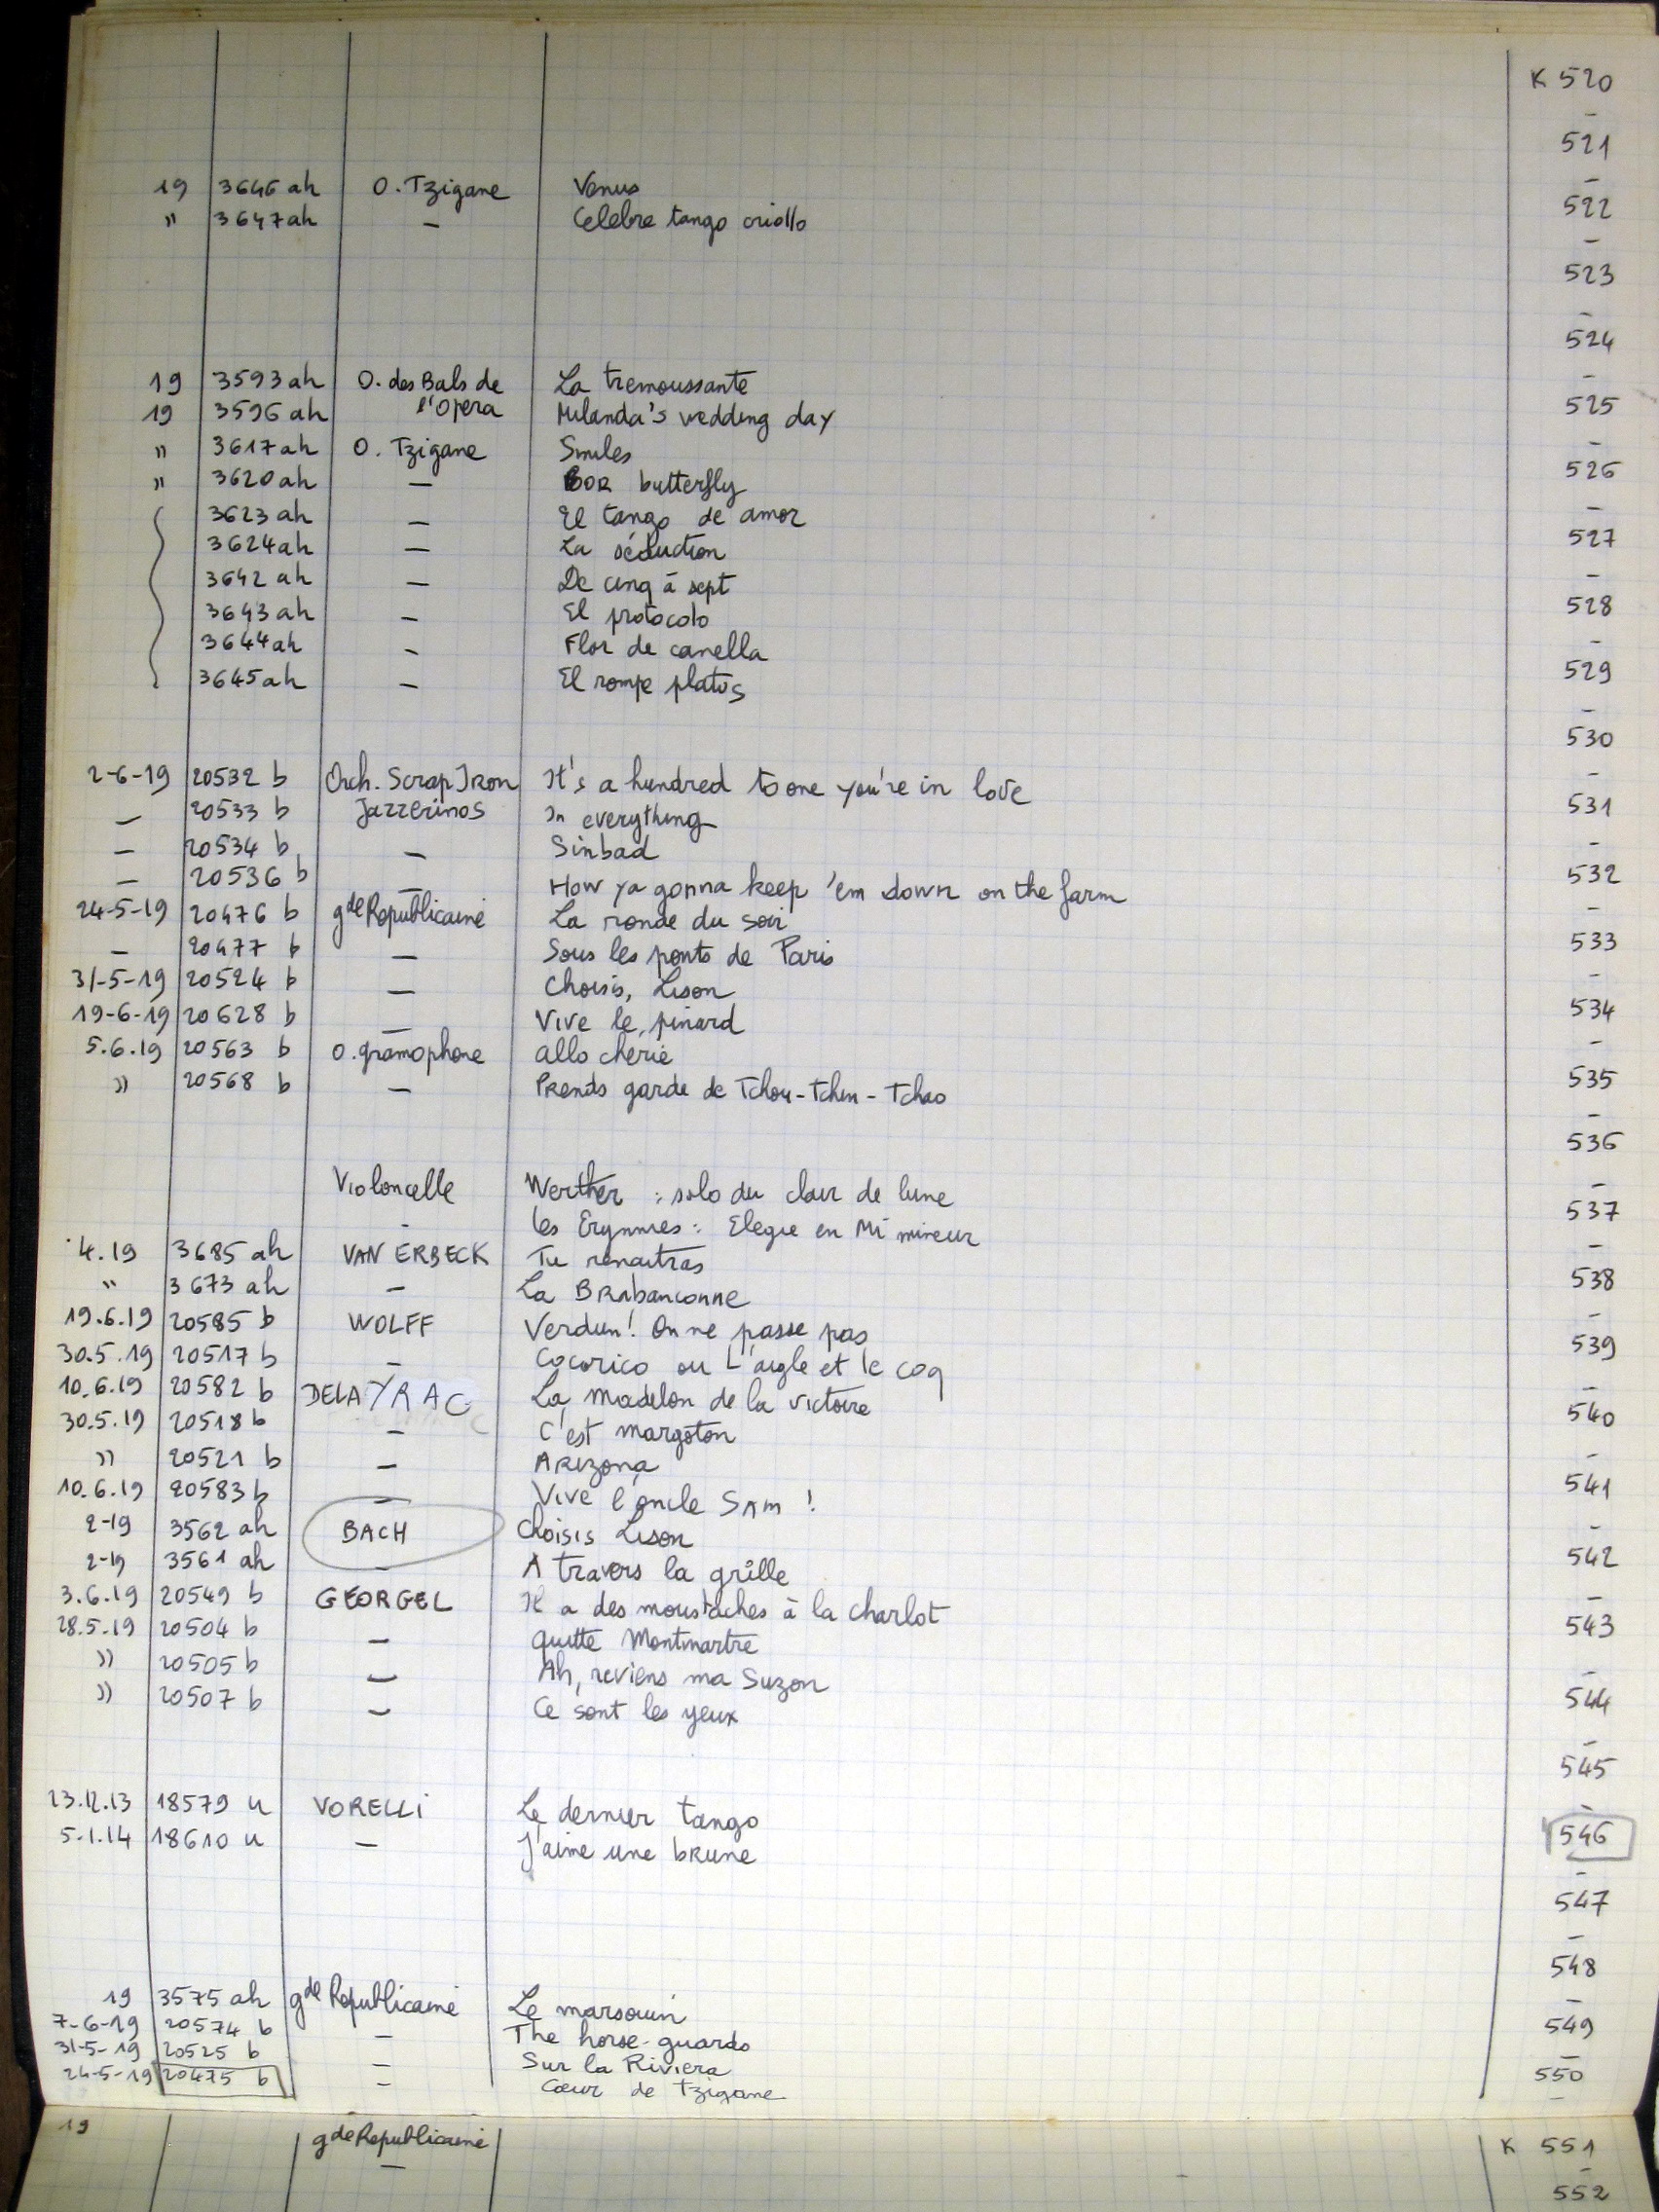 K 520
-
521
-
19 3646 ah O. Tzigane Venus
522
" 3647 ah — Celebre tango criollo
-
523
-
524
-
19 3593 ah O. des Bals de l'Opera La tremoussante
525
19 3596 ah Mulanda's wedding day
-
" 3617 ah O. Tzigane Smiles
526
" 3620 ah — butterfly
-
3623 ah — El tango de amor
527
3624 ah — La séduction
-
3642 ah — De cinq à sept
528
3643 ah — El protocolo
-
3644 ah - Flor de canella
529
3645 ah — El rompe platos
-
530
-
2-6-19 20532 b Orch. Scrap Iron Jazzerinos It's a hundred to one you're in love
531
— 20533 b In everything
-
— 20534 b — Sinbad
532
— 20536 b — How ya gonna keep 'em down on the farm
-
24-5-19 20476 b gde Republicaine La ronde du soir
533
— 20477 b — Sous les ponts de Paris
-
31-5-19 20524 b — Choisis, Lison
534
19-6-19 20628 b — Vive le pinard
-
5.6.19 20563 b O. gramophone allo cherie
535
" 20568 b — Prends garde de Tchou-Tchin-Tchao
-
536
-
Violoncelle Werther : solo du clair de lune
537
- Les Erynnies : Elegie en Mi mineur
-
4.19 3685 ah VAN ERBECK Tu renaitras
538
" 3673 ah — La Brabanconne
-
19.6.19 20585 b WOLFF Verdun! On ne passe pas
539
30.5.19 20517 b — Cocorico ou L'aigle et le coq
-
10.6.19 20582 b DELAYRAC La Madelon de la victoire
540
30.5.19 20518 b — C'est margoton
-
" 20521 b — Arizona
541
10.6.19 20583 b — Vive l'oncle Sam !
-
2-19 3562 ah BACH Choisis Lison
542
2-19 3561 ah — A travers la grille
-
3.6.19 20549 b GEORGEL Il a des moustaches à la Charlot
543
28.5.19 20504 b — quitte Montmartre
-
" 20505 b — Ah, reviens ma Suzon
544
" 20507 b — Ce sont les yeux
-
545
-
23.12.13 18579 u VORELLI Le dernier tango
546
5.1.14 18610 u — J'aime une brune
-
547
-
548
-
19 3575 ah gde Republicaine Le marsouin
549
7-6-19 20574 b — The horse-guards
-
31-5-19 20525 b — Sur la Riviera
550
24-5-19 20475 b — Cœur de Tzigane
-
19 gde Republicaine K 551
— -
552